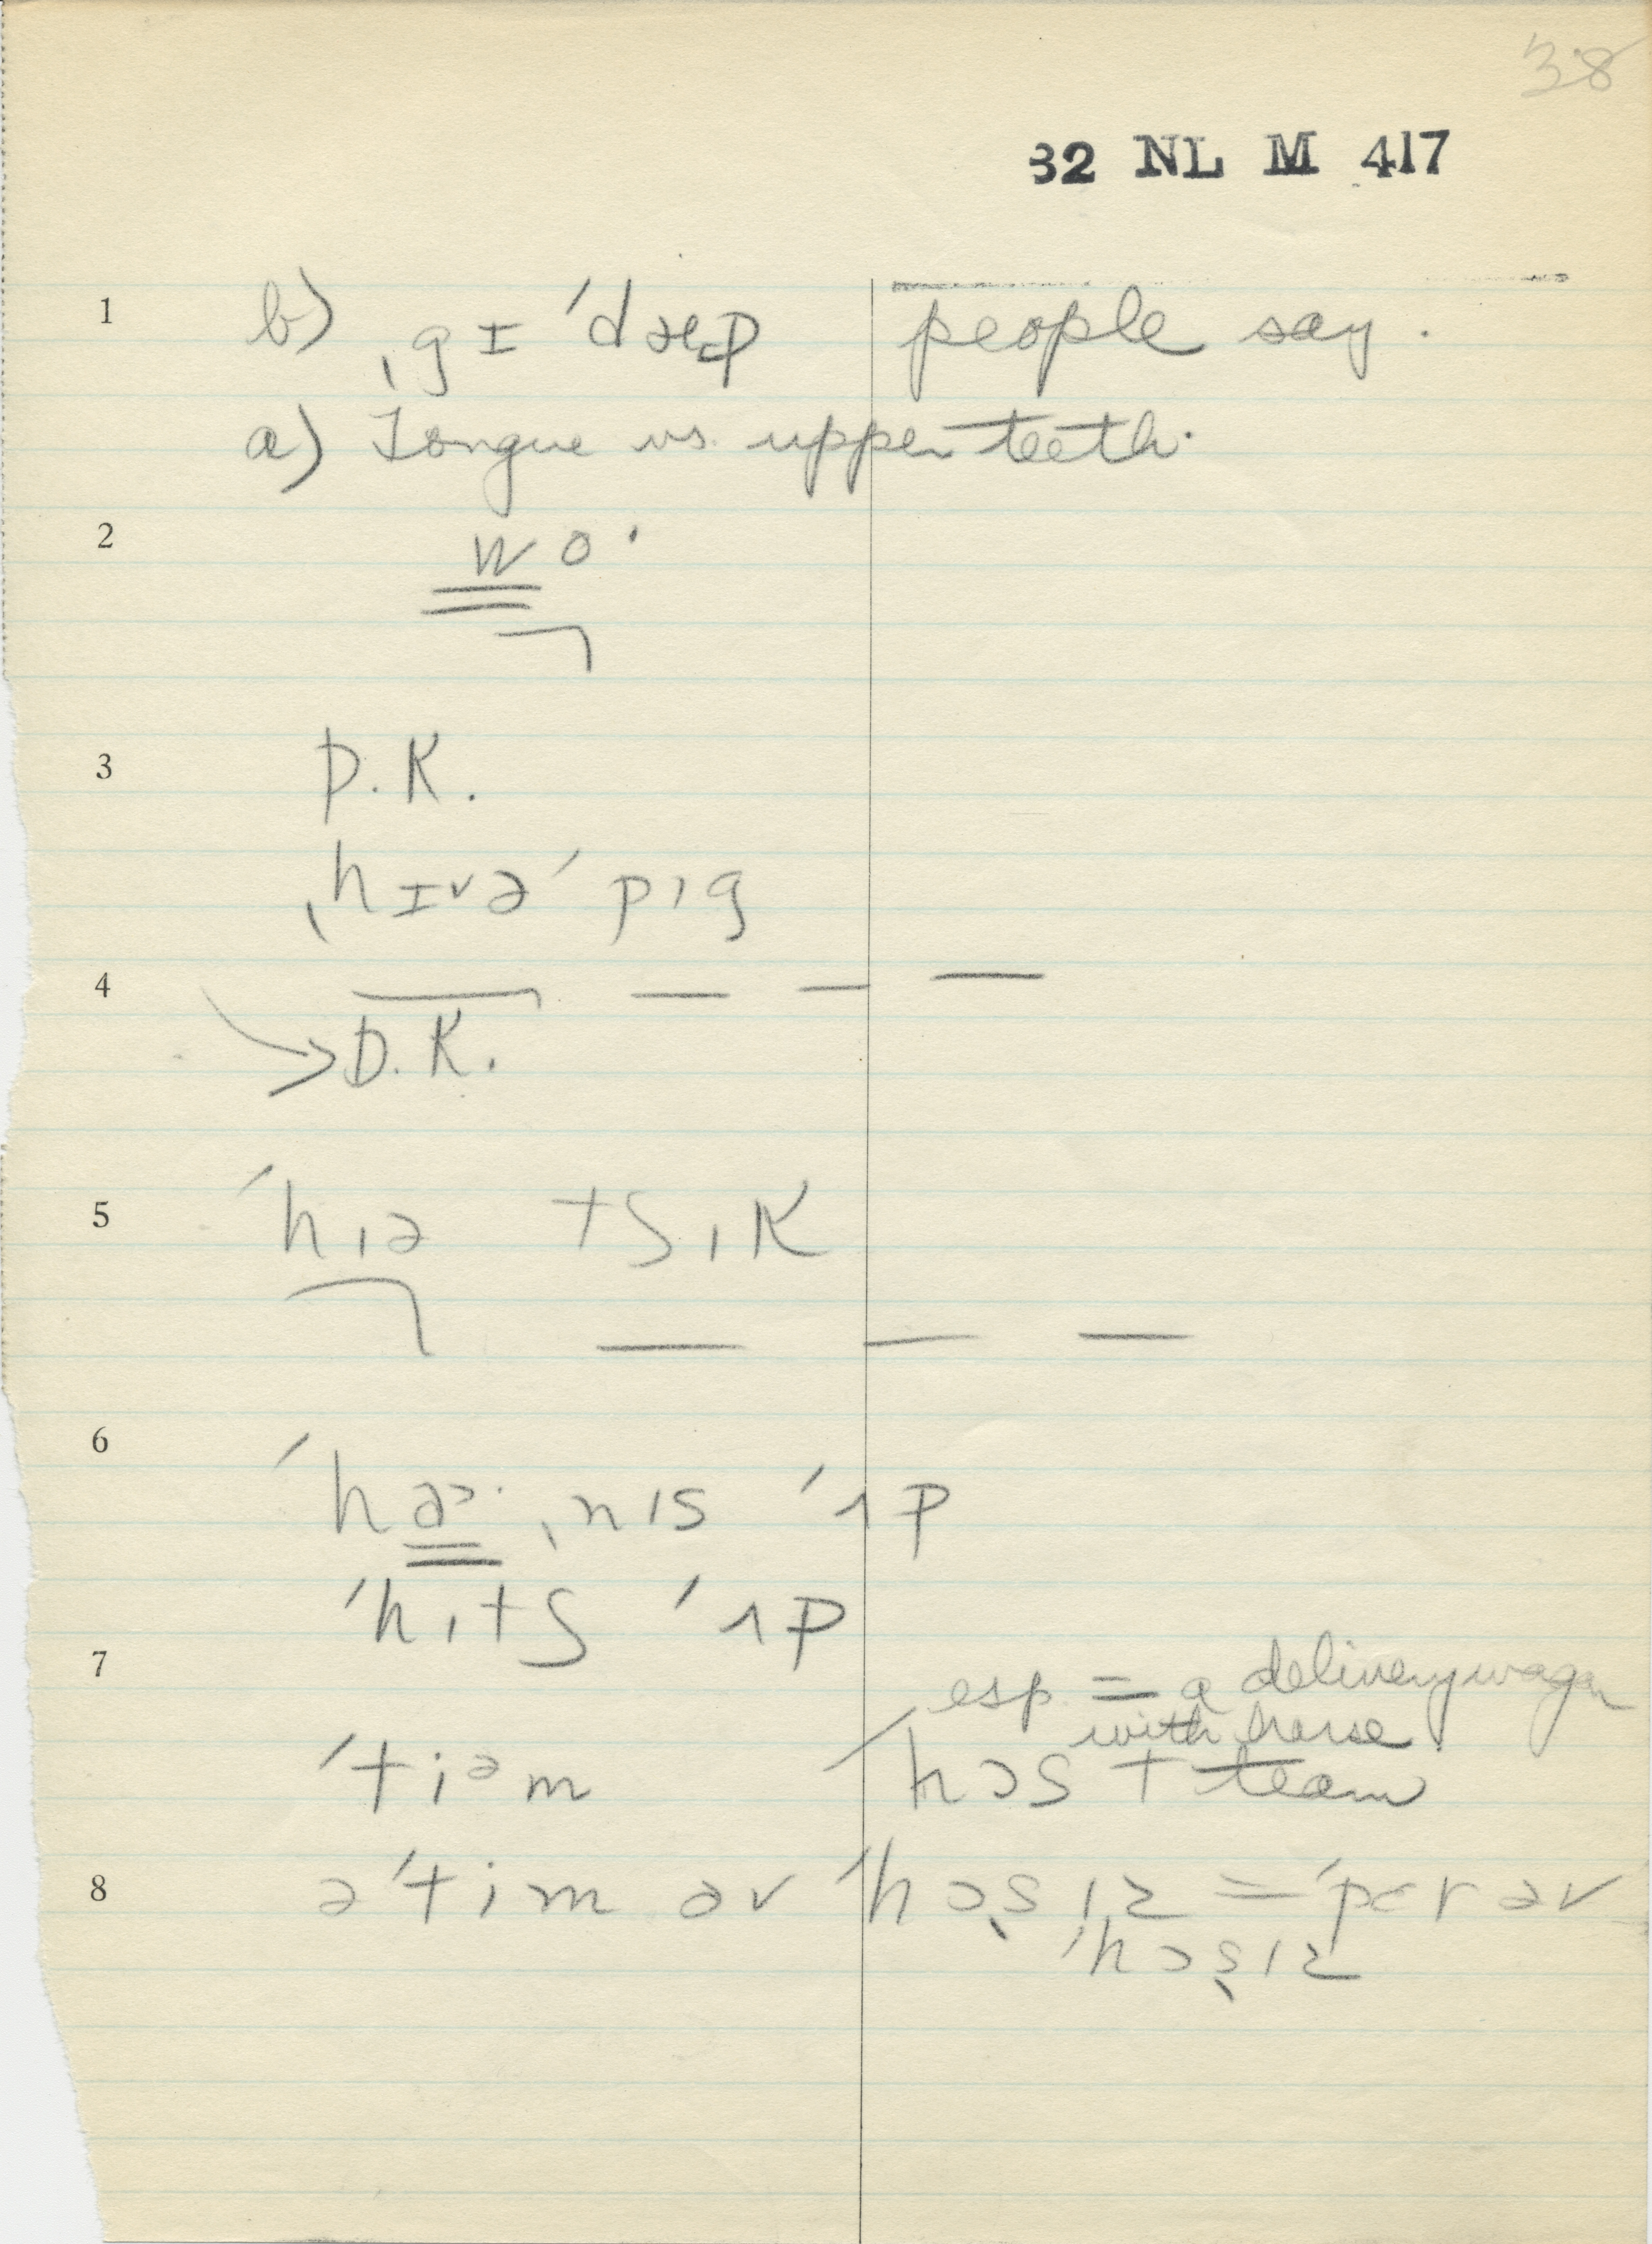 38
32 NL M 417
1 b) ˌgɪ ˈdæp people say.
a) Tongue vs. upper teeth.
2 wo·
3 D.K.
ˌhɪvə ˈpɪg
4
→ D.K.
5 ˈhɪə tʃɪk
6
ˈhɚ· ˌnɪs ˈʌp
ˈhɪtʃ ˈʌp
7
esp = a delivery wagon
with horse
ˈtiᵊm ˈhɔst team
8 əˈtim əv ˈhɔsɪz = ˈpɛr əv
ˈhɔsɪz